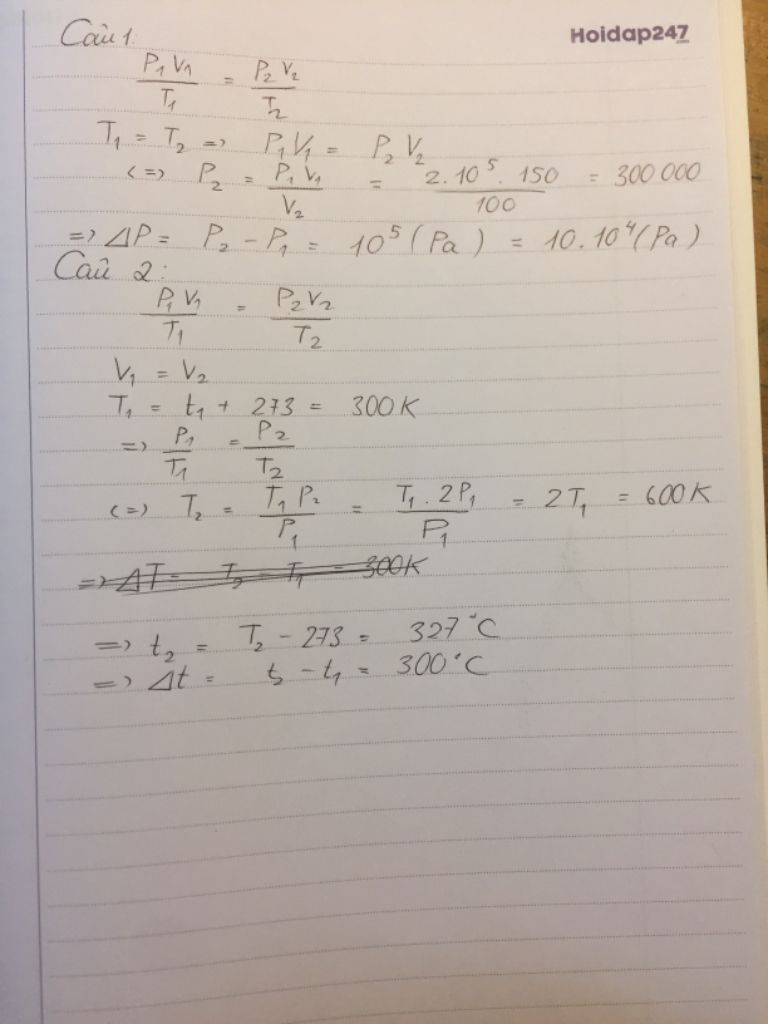 Câu 1.
Hoidap247
P₁V₁/T₁ = P₂V₂/T₂
T₁ = T₂ => P₁V₁ = P₂V₂
<=> P₂ = P₁V₁/V₂ = 2.10⁵.150/100 = 300 000
=> ΔP = P₂ - P₁ = 10⁵ (Pa) = 10.10⁴ (Pa)
Câu 2:
P₁V₁/T₁ = P₂V₂/T₂
V₁ = V₂
T₁ = t₁ + 273 = 300K
=> P₁/T₁ = P₂/T₂
<=> T₂ = T₁P₂/P₁ = T₁.2P₁/P₁ = 2T₁ = 600K
=> ΔT = T₂ - T₁ = 300K
=> t₂ = T₂ - 273 = 327°C
=> Δt = t₂ - t₁ = 300°C